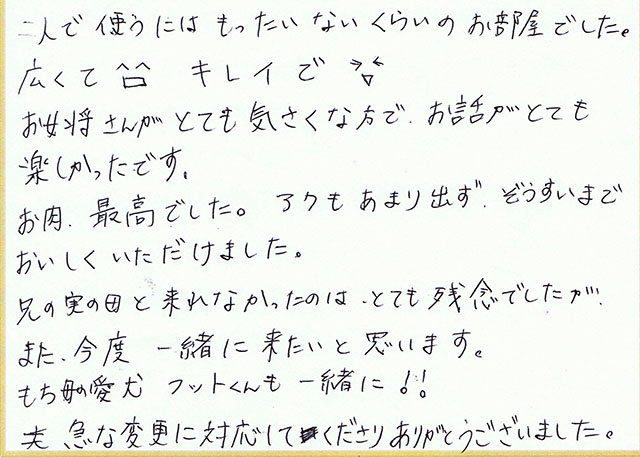 二人で使うにはもったいないくらいのお部屋でした。
広くて^□^ キレイで >▽<
お女将さんがとても気さくな方で、お話がとても
楽しかったです。
お肉、最高でした。アクもあまり出ず、ぞうすいまで
おいしくいただけました。
兄の実の田と来れなかったのは、とても残念でしたが、
また、今度 一緒に来たいと思います。
もち母の愛犬 フットくんも一緒に!!
夫 急な変更に対応してくださりありがとうございました。